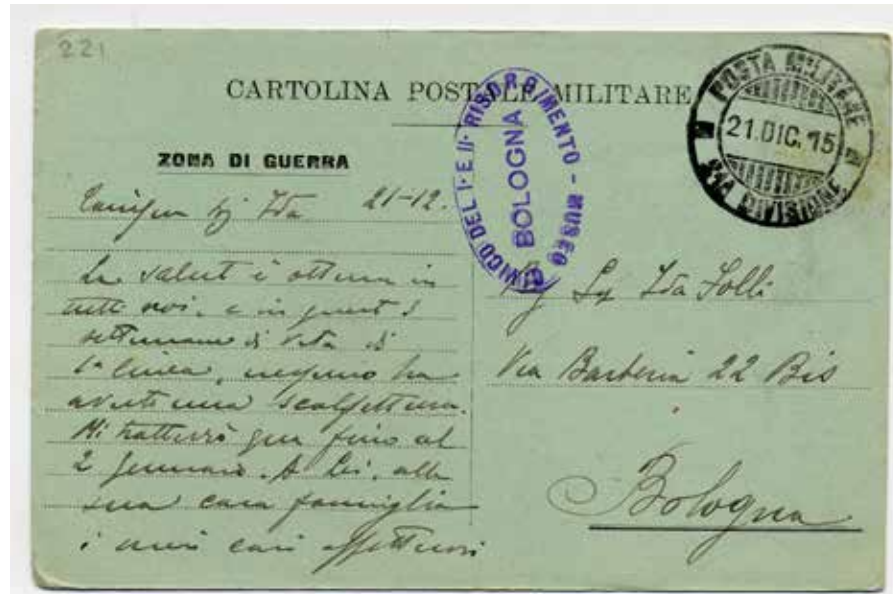 221
CARTOLINA POSTALE MILITARE
ZONA DI GUERRA
POSTA MILITARE
21.DIC.15
DIVISIONE
CIVICO DEL I·E II· RISORGIMENTO - MUSEO
BOLOGNA
Ida 21-12.
La salute è ottima in
tutti noi, e in queste 3
settimane di vita di
1ª linea, nessuno ha
avuto una scalfittura.
Mi tratterrò qua fino al
2 Gennaio. A Lei, alla
sua cara famiglia
i miei cari affettuosi
Ida Folli
Via Barberia 22 Bis
Bologna